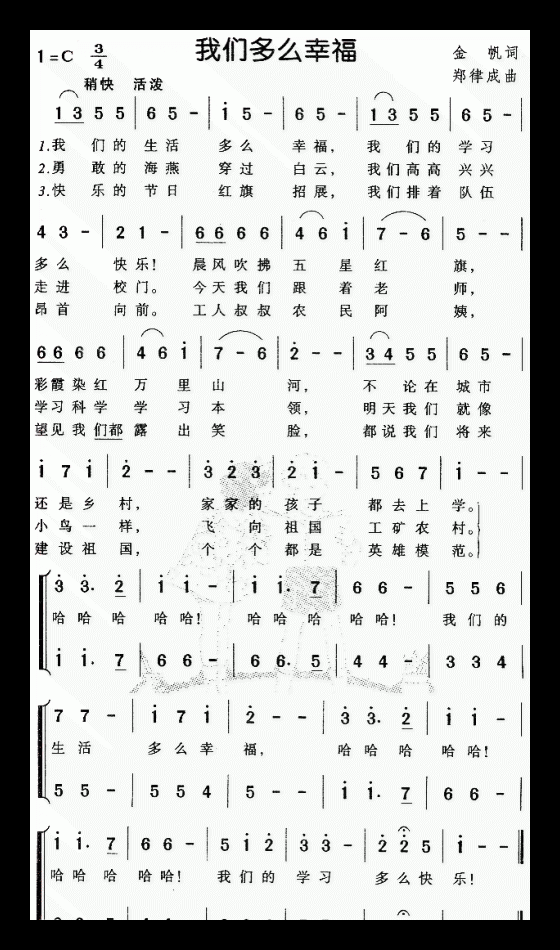 我们多么幸福
1=C 3/4
金 帆 词
郑律成 曲
稍快 活泼
1 3 5 5 | 6 5 - | i 5 - | 6 5 - | 1 3 5 5 | 6 5 - |
1.我 们的 生活 多么 幸福, 我 们的 学习
2.勇 敢的 海燕 穿过 白云, 我们高高 兴兴
3.快 乐的 节日 红旗 招展, 我们排着 队伍
4 3 - | 2 1 - | 6 6 6 6 | 4 6 i | 7 - 6 | 5 - - |
多么 快乐! 晨风吹拂 五 星 红 旗,
走进 校门。 今天我们 跟 着 老 师,
昂首 向前。 工人叔叔 农 民 阿 姨,
6 6 6 6 | 4 6 i | 7 - 6 | 2̇ - - | 3 4 5 5 | 6 5 - |
彩霞染红 万 里 山 河, 不 论在 城市
学习科学 学 习 本 领, 明天我们 就像
望见我们都 露 出 笑 脸, 都说我们 将来
i 7 i | 2̇ - - | 3̇ 2̇ 3̇ | 2̇ i - | 5 6 7 | i - - |
还是乡 村, 家家的 孩子 都去上 学。
小鸟一 样, 飞 向 祖国 工矿农 村。
建设祖 国, 个 个 都是 英雄模 范。
3̇ 3̇. 2̇ | i i - | i i. 7 | 6 6 - | 5 5 6 |
哈哈 哈 哈哈! 哈哈 哈 哈哈! 我们的
i i. 7 | 6 6 - | 6 6. 5 | 4 4 - | 3 3 4 |
7 7 - | i 7 i | 2̇ - - | 3̇ 3̇. 2̇ | i i - |
生活 多么幸 福, 哈哈 哈 哈哈!
5 5 - | 5 5 4 | 5 - - | i i. 7 | 6 6 - |
i i. 7 | 6 6 - | 5 i 2̇ | 3̇ 3̇ - | 2̇ 2̇ 5 | i - - |
哈哈 哈 哈哈! 我们的 学习 多么快 乐!